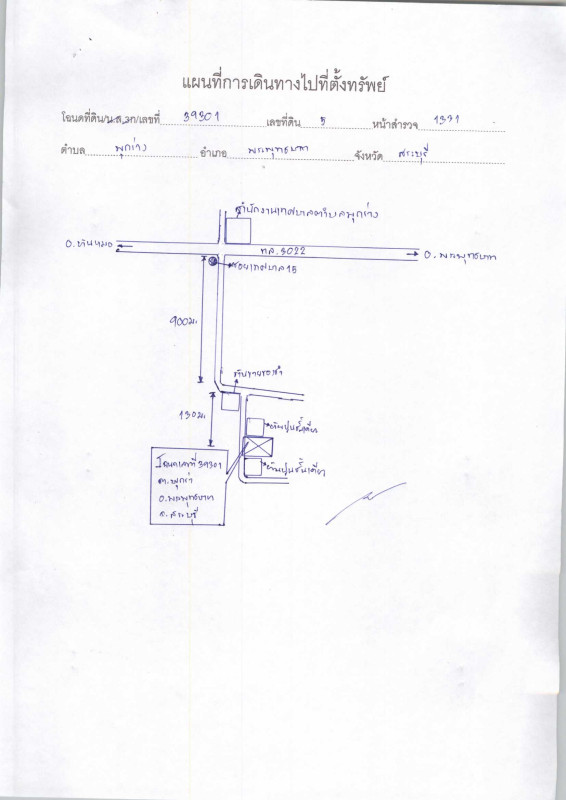 แผนที่การเดินทางไปที่ตั้งทรัพย์
โฉนดที่ดิน/น.ส.3ก/เลขที่ 39301 เลขที่ดิน 5 หน้าสำรวจ 1331
ตำบล พุกร่าง อำเภอ พระพุทธบาท จังหวัด สระบุรี
สำนักงานเทศบาลตำบลพุกร่าง
อ.หนองโดน
ทล.3022
อ.พระพุทธบาท
ซอยเทศบาล 15
900 ม.
ร้านขายของชำ
130 ม.
บ้านปูนชั้นเดียว
โฉนดเลขที่ 39301
บ้านปูนชั้นเดียว
ต.พุกร่าง
อ.พระพุทธบาท
จ.สระบุรี